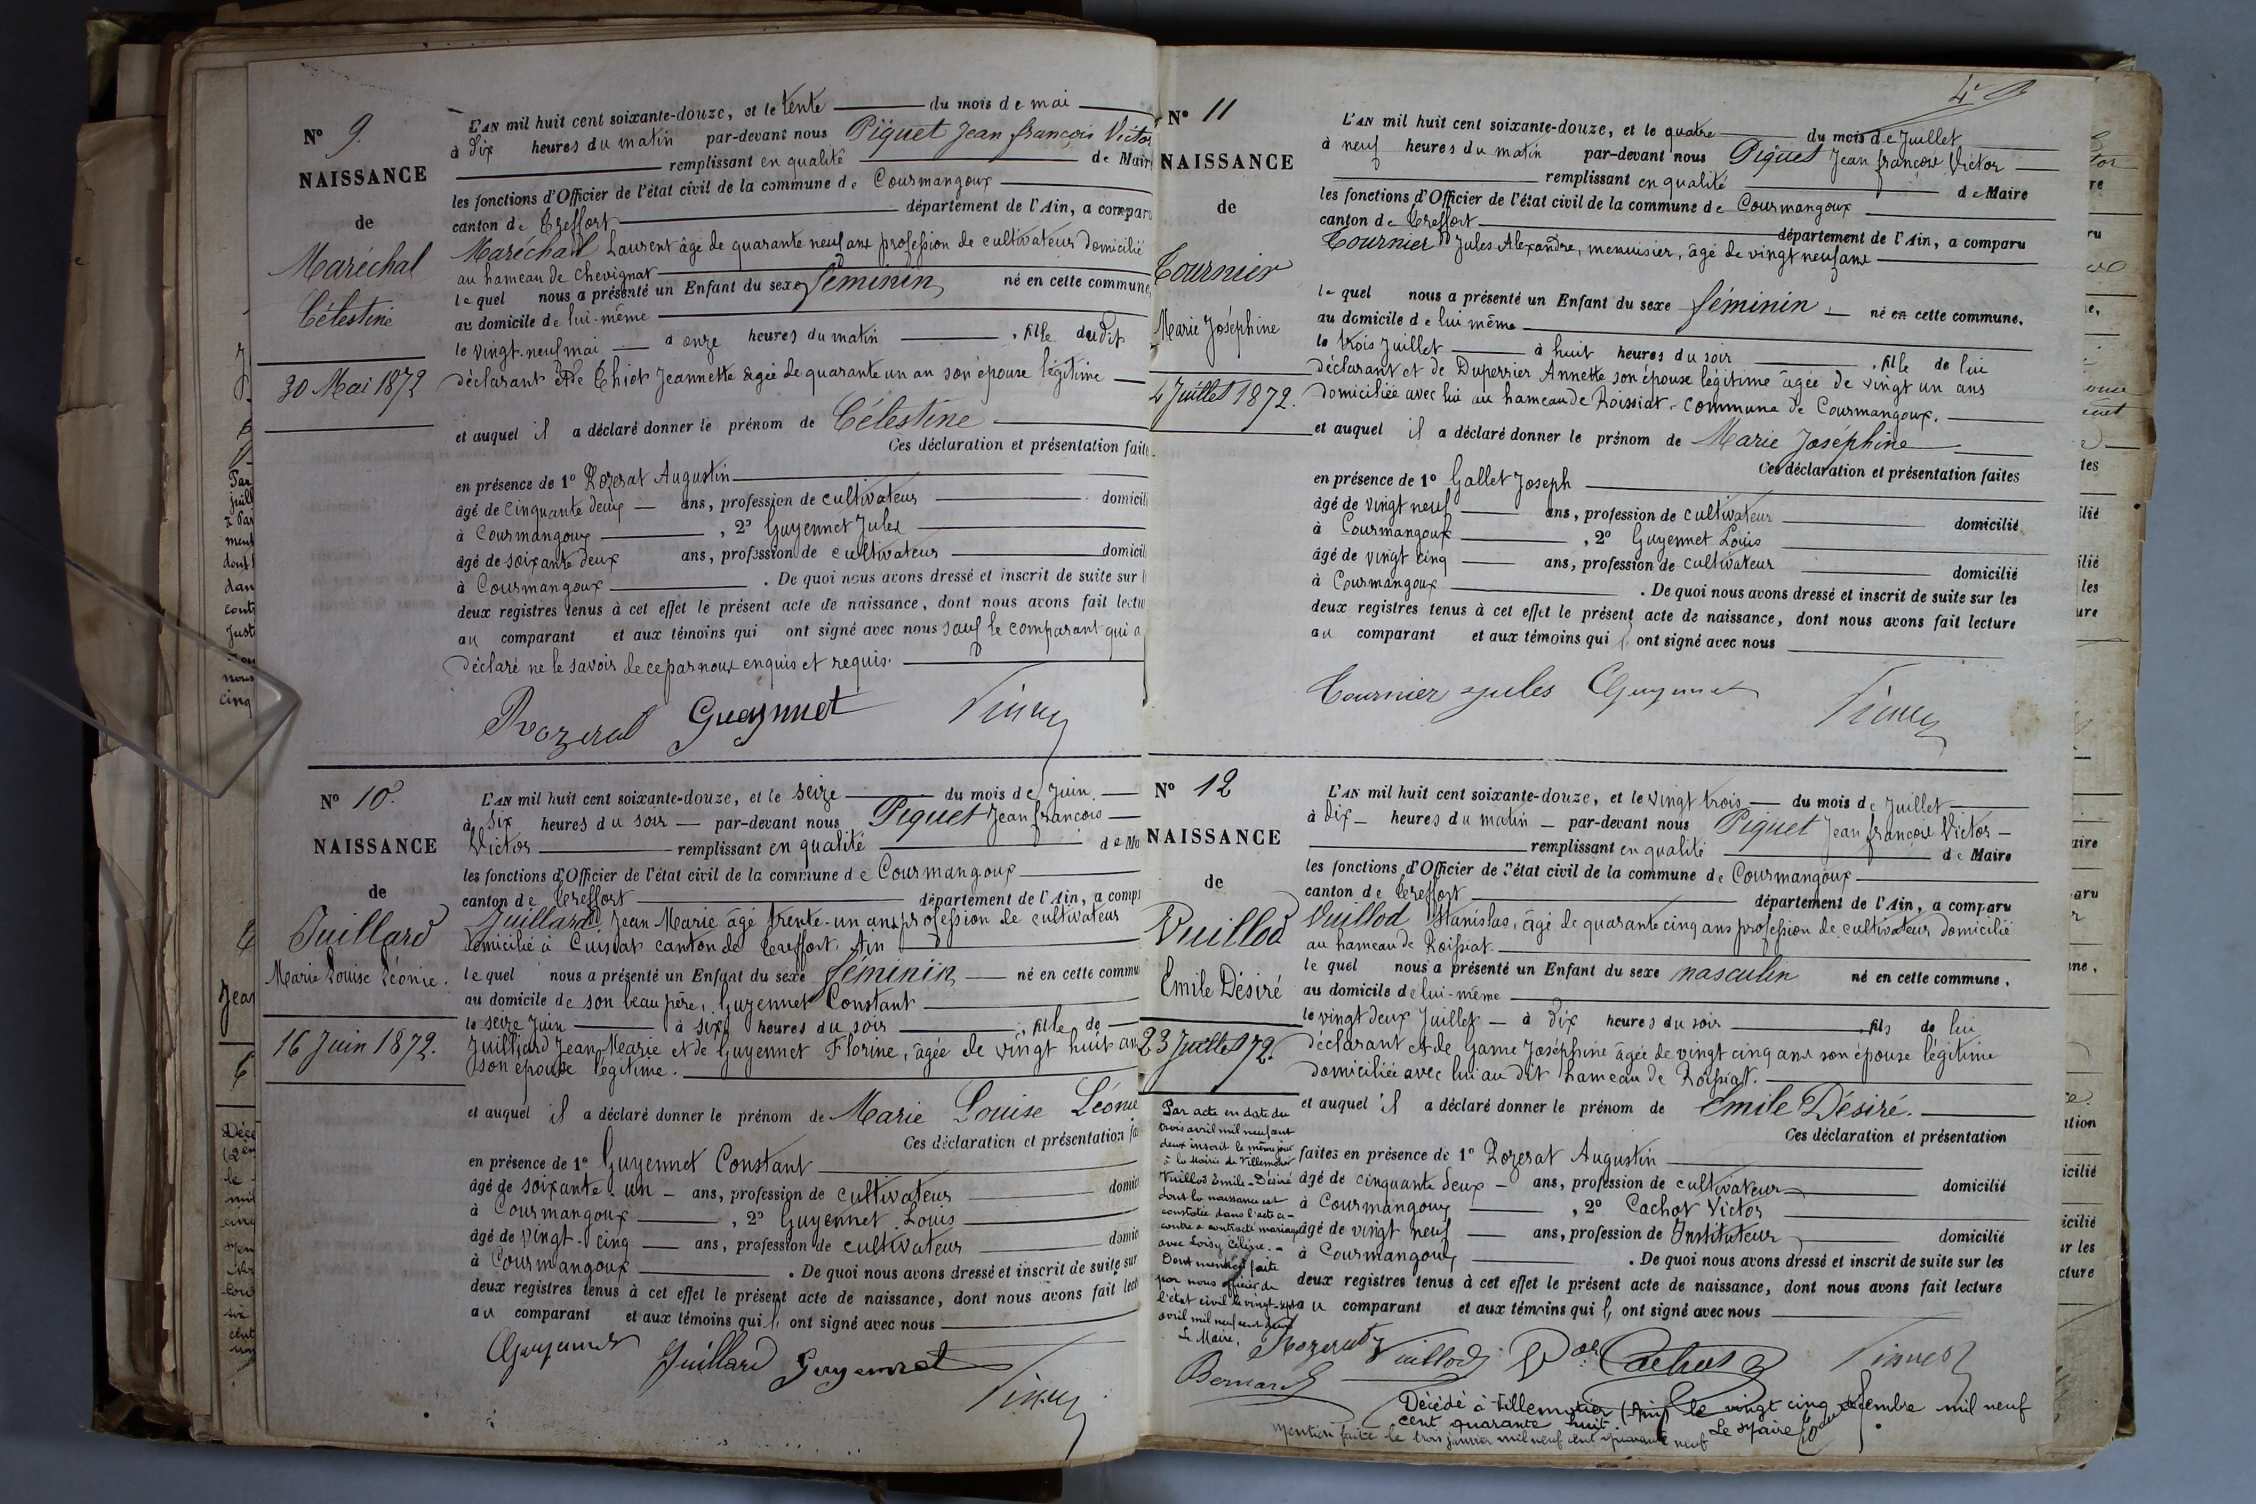 N° 9.
NAISSANCE
de
Maréchal
Célestine
30 Mai 1872
L'AN mil huit cent soixante-douze, et le trente du mois de mai
à dix heures du matin par-devant nous Piquet Jean françois Victor
remplissant en qualité de Mair
les fonctions d'Officier de l'état civil de la commune de Courmangoux
canton de Treffort département de l'Ain, a comparu
Maréchal Laurent âgé de quarante neuf ans profession de cultivateur domicilié
au hameau de Chevignat
le quel nous a présenté un Enfant du sexe féminin né en cette commune,
au domicile de lui-même
le vingt-neuf mai à onze heures du matin , fille dudit
déclarant et de Thiot Jeannette âgée de quarante un an son épouse légitime
et auquel il a déclaré donner le prénom de Célestine
Ces déclaration et présentation faite
en présence de 1° Rozerat Augustin
âgé de cinquante deux ans, profession de cultivateur domicili
à Courmangoux , 2° Guyennet Jules
âgé de soixante deux ans, profession de cultivateur domicil
à Courmangoux . De quoi nous avons dressé et inscrit de suite sur l
deux registres tenus à cet effet le présent acte de naissance, dont nous avons fait lectu
au comparant et aux témoins qui ont signé avec nous sauf le comparant qui a
déclaré ne le savoir de ce par nous enquis et requis.
Rozerat Guyennet
N° 10.
NAISSANCE
de
Juillard
Marie Louise Léonie.
16 Juin 1872.
L'AN mil huit cent soixante-douze, et le seize du mois de Juin
à six heures du soir par-devant nous Piquet Jean françois
Victor remplissant en qualité de Ma
les fonctions d'Officier de l'état civil de la commune de Courmangoux
canton de Treffort département de l'Ain, a compa
Juillard Jean Marie âgé trente-un ans profession de cultivateur
domicilié à Cuisiat canton de Treffort, Ain
le quel nous a présenté un Enfant du sexe féminin né en cette commu
au domicile de son beau père, Guyennet Constant
le seize Juin à six heures du soir , fille de
Juilliard Jean Marie et de Guyennet Florine, âgée de vingt huit an
son épouse légitime.
et auquel il a déclaré donner le prénom de Marie Louise Léonie
Ces déclaration et présentation fa
en présence de 1° Guyennet Constant
âgé de soixante-un ans, profession de cultivateur domic
à Courmangoux , 2° Guyennet Louis
âgé de vingt-cinq ans, profession de cultivateur domic
à Courmangoux . De quoi nous avons dressé et inscrit de suite sur
deux registres tenus à cet effet le présent acte de naissance, dont nous avons fait lect
au comparant et aux témoins qui ont signé avec nous
Guyennet Juillard Guyennet
N° 11
NAISSANCE
de
Tournier
Marie Joséphine
4 Juillet 1872.
L'AN mil huit cent soixante-douze, et le quatre du mois de Juillet
à neuf heures du matin par-devant nous Piquet Jean françois Victor
remplissant en qualité de Maire
les fonctions d'Officier de l'état civil de la commune de Courmangoux
canton de Treffort département de l'Ain, a comparu
Tournier Jules Alexandre, menuisier, âgé de vingt neuf ans
le quel nous a présenté un Enfant du sexe féminin né en cette commune,
au domicile de lui même
le trois Juillet à huit heures du soir , fille de lui
déclarant et de Duperrier Annette son épouse légitime âgée de vingt un ans
domiciliée avec lui au hameau de Roissiat, commune de Courmangoux.
et auquel il a déclaré donner le prénom de Marie Joséphine
Ces déclaration et présentation faites
en présence de 1° Gallet Joseph
âgé de vingt neuf ans, profession de cultivateur domicilié
à Courmangoux , 2° Guyennet Louis
âgé de vingt cinq ans, profession de cultivateur domicilié
à Courmangoux . De quoi nous avons dressé et inscrit de suite sur les
deux registres tenus à cet effet le présent acte de naissance, dont nous avons fait lecture
au comparant et aux témoins qui ont signé avec nous
Tournier Jules Guyennet
N° 12
NAISSANCE
de
Vuillod
Emile Désiré
23 Juillet 72.
L'AN mil huit cent soixante-douze, et le vingt trois du mois de Juillet
à dix heures du matin par-devant nous Piquet Jean françois Victor
remplissant en qualité de Maire
les fonctions d'Officier de l'état civil de la commune de Courmangoux
canton de Treffort département de l'Ain, a comparu
Vuillod Stanislas, âgé de quarante cinq ans profession de cultivateur domicilié
au hameau de Roissiat.
le quel nous a présenté un Enfant du sexe masculin né en cette commune,
au domicile de lui-même
le vingt deux Juillet à dix heures du soir , fils de lui
déclarant et de Game Joséphine âgée de vingt cinq ans son épouse légitime
domiciliée avec lui au dit hameau de Roissiat.
et auquel il a déclaré donner le prénom de Emile Désiré.
Ces déclaration et présentation
faites en présence de 1° Rozerat Augustin
âgé de cinquante deux ans, profession de cultivateur domicilié
à Courmangoux , 2° Cachot Victor
âgé de vingt neuf ans, profession de Instituteur domicilié
à Courmangoux . De quoi nous avons dressé et inscrit de suite sur les
deux registres tenus à cet effet le présent acte de naissance, dont nous avons fait lecture
au comparant et aux témoins qui ont signé avec nous
Par acte en date du
trois avril mil neuf cent
deux inscrit le même jour
à la Mairie de Villemotier
Vuillod Emile-Désiré
dont la naissance est
constatée dans l'acte ci-
contre a contracté mariage
avec Loisy Céline.
Dont mention faite
par nous officier de
l'état civil le vingt-sept
avril mil neuf cent deux
Le Maire,
Bernard
Rozerat Vuillod Cachot
Décédé à Villemotier (Ain) le vingt cinq décembre mil neuf
cent quarante huit.
Mention faite le trois janvier mil neuf cent quarante neuf Le Maire